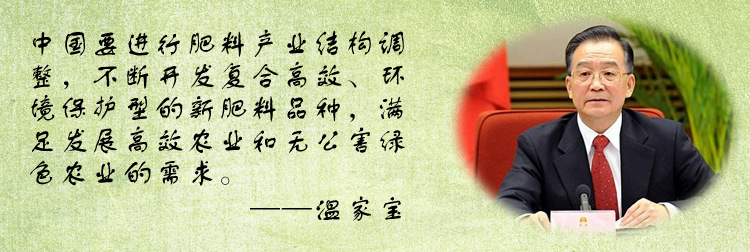 中国要进行肥料产业结构调
整，不断开发复合高效、环
境保护型的新肥料品种，满
足发展高效农业和无公害绿
色农业的需求。
——温家宝